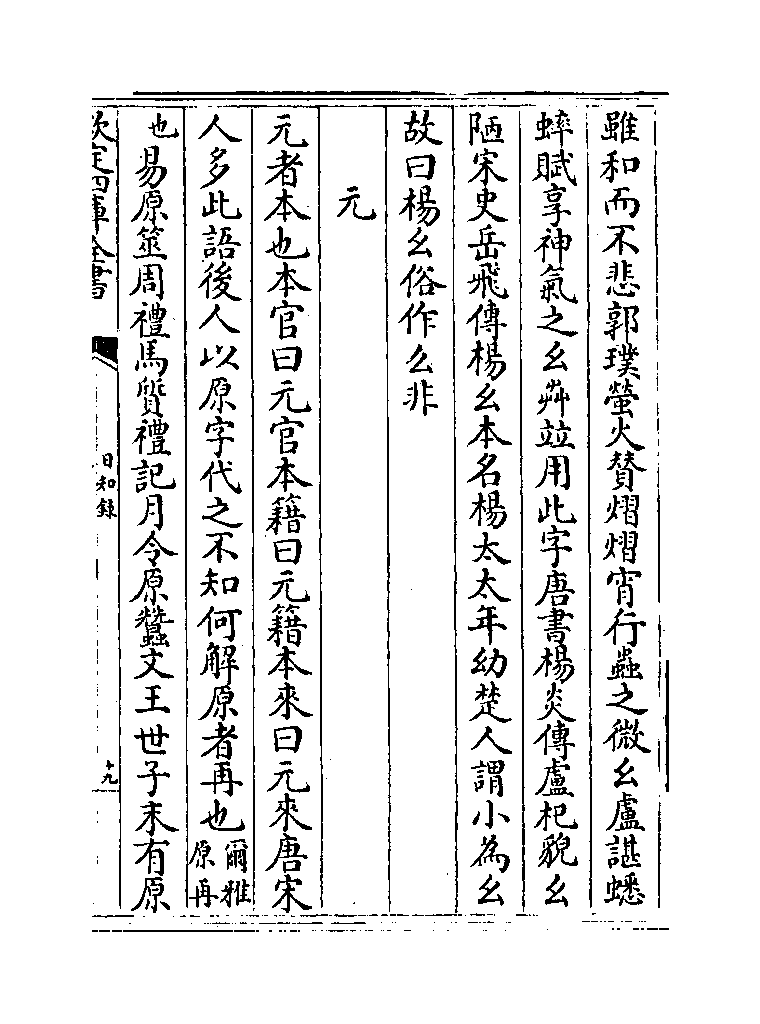 雖和而不悲郭璞螢火賛熠熠宵行蟲之微么盧諶蟋
蟀賦享神氣之么𦭼竝用此字唐書楊炎傳盧杞貌么
陋宋史岳飛傳楊么本名楊太太年幼楚人謂小為么
故曰楊么俗作么非
元
元者本也本官曰元官本籍曰元籍本來曰元來唐宋
人多此語後人以原字代之不知何解原者再也爾雅
原再
也易原筮周禮馬質禮記月令原蠶文王世子末有原
欽定四庫全書
日知錄
十九